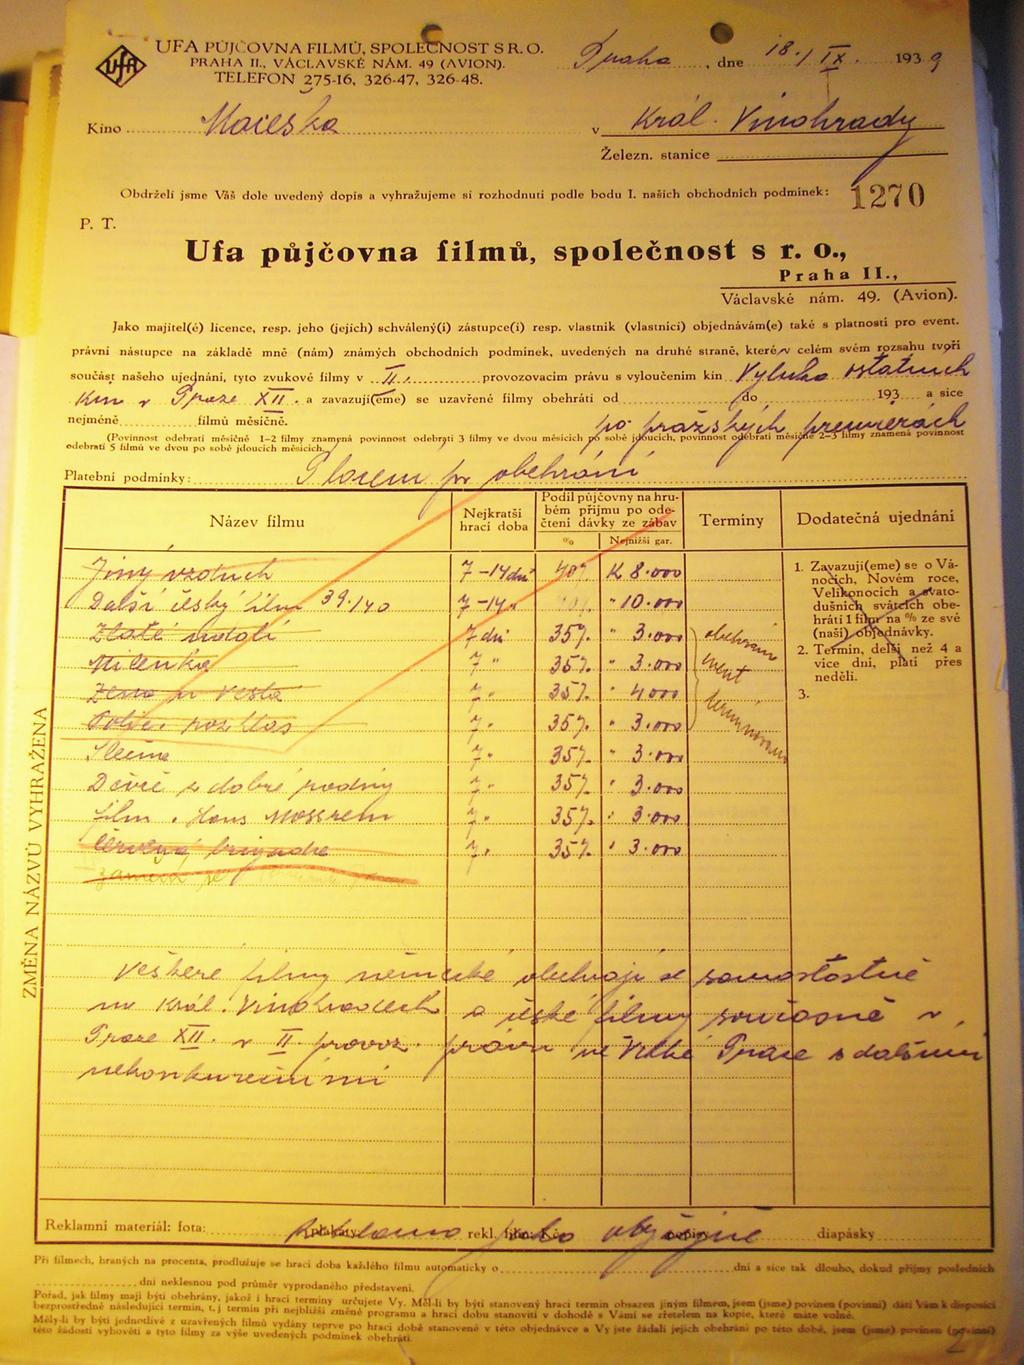 UFA PŮJČOVNA FILMŮ, SPOLEČNOST S R. O.
PRAHA II., VÁCLAVSKÉ NÁM. 49 (AVION).
TELEFON 275-16, 326-47, 326-48.
UfA
Praha, dne 18./IX. 1939
Kino Maceška v Král. Vinohrady
Železn. stanice
Obdrželi jsme Váš dole uvedený dopis a vyhražujeme si rozhodnutí podle bodu I. našich obchodních podmínek:
1270
P. T.
Ufa půjčovna filmů, společnost s r. o.,
Praha II.,
Václavské nám. 49. (Avion).
Jako majitel(é) licence, resp. jeho (jejich) schválený(í) zástupce(i) resp. vlastník (vlastníci) objednávám(e) také s platností pro event.
právní nástupce na základě mně (nám) známých obchodních podmínek, uvedených na druhé straně, které v celém svém rozsahu tvoří
součást našeho ujednání, tyto zvukové filmy v II. provozovacím právu s vyloučením kin Výluka ostatních
kin v Praze XII. a zavazuji(eme) se uzavřené filmy obehráti od do 193 a sice
nejméně filmů měsíčně. po pražských premiérách
(Povinnost odebrati měsíčně 1-2 filmy znamená povinnost odebrati 3 filmy ve dvou měsících po sobě jdoucích, povinnost odebrati měsíčně 2-3 filmy znamená povinnost
odebrati 5 filmů ve dvou po sobě jdoucích měsících.
Platební podmínky: předem po obehrání
Název filmu
Nejkratší hrací doba
Podíl půjčovny na hrubém příjmu po odečtení dávky ze zábav
% Nejnižší gar.
Termíny
Dodatečná ujednání
Jiný vzduch 7-14 dní 40% K 8.000
Další český film 39/40 7-14 " 40% " 10.000
Zlaté údolí 7 dní 35% " 3.000
Milenka 7 " 35% " 3.000
Žena 7 " 35% " 4.000
rozhlas 7 " 35% " 3.000
Slečna 7 " 35% " 3.000
Děvče z dobré rodiny 7 " 35% " 3.000
film s Hans Moserem 7 " 35% " 3.000
Červená brigáda 7 " 35% " 3.000
obehrání
1. Zavazuji(eme) se o Vánocích, Novém roce, Velikonocích a svatodušních svátcích obehráti 1 film na % ze své (naší) objednávky.
2. Termín, delší než 4 a více dní, platí přes neděli.
3.
ZMĚNA NÁZVŮ VYHRAŽENA
Veškeré filmy německé obehrají se samostatně
na Král. Vinohradech a české filmy současně v
Praze XII. v II. provoz. právu ve Velké Praze s dalšími
nekonkurečními
Reklamní materiál: fota: plakáty rekl. film č. kopie diapásky
Reklama jako obyčejně
Při filmech, hraných na procenta, prodlužuje se hrací doba každého filmu automaticky o dní a sice tak dlouho, dokud příjmy posledních
dní neklesnou pod průměr vyprodaného představení.
Pořad, jak filmy mají býti obehrány, jakož i hrací termíny určujete Vy. Měl-li by býti stanovený hrací termín obsazen jiným filmem, jsem (jsme) povinen (povinni) dáti Vám k disposici
bezprostředně následující termín, t. j. termín při nejbližší změně programu a hrací dobu stanoviti v dohodě s Vámi se zřetelem na kopie, které máte volné.
Měly-li by býti jednotlivé z uzavřených filmů vydány teprve po hrací době stanovené v této objednávce a Vy jste žádali jejich obehrání po této době, jsem (jsme) povinen (povinni)
této žádosti vyhověti a tyto filmy za výše uvedených podmínek obehráti.
2